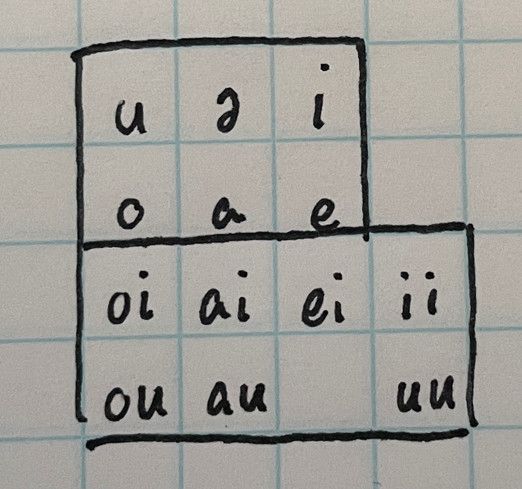 u ə i
o a e
oi ai ei ii
ou au uu